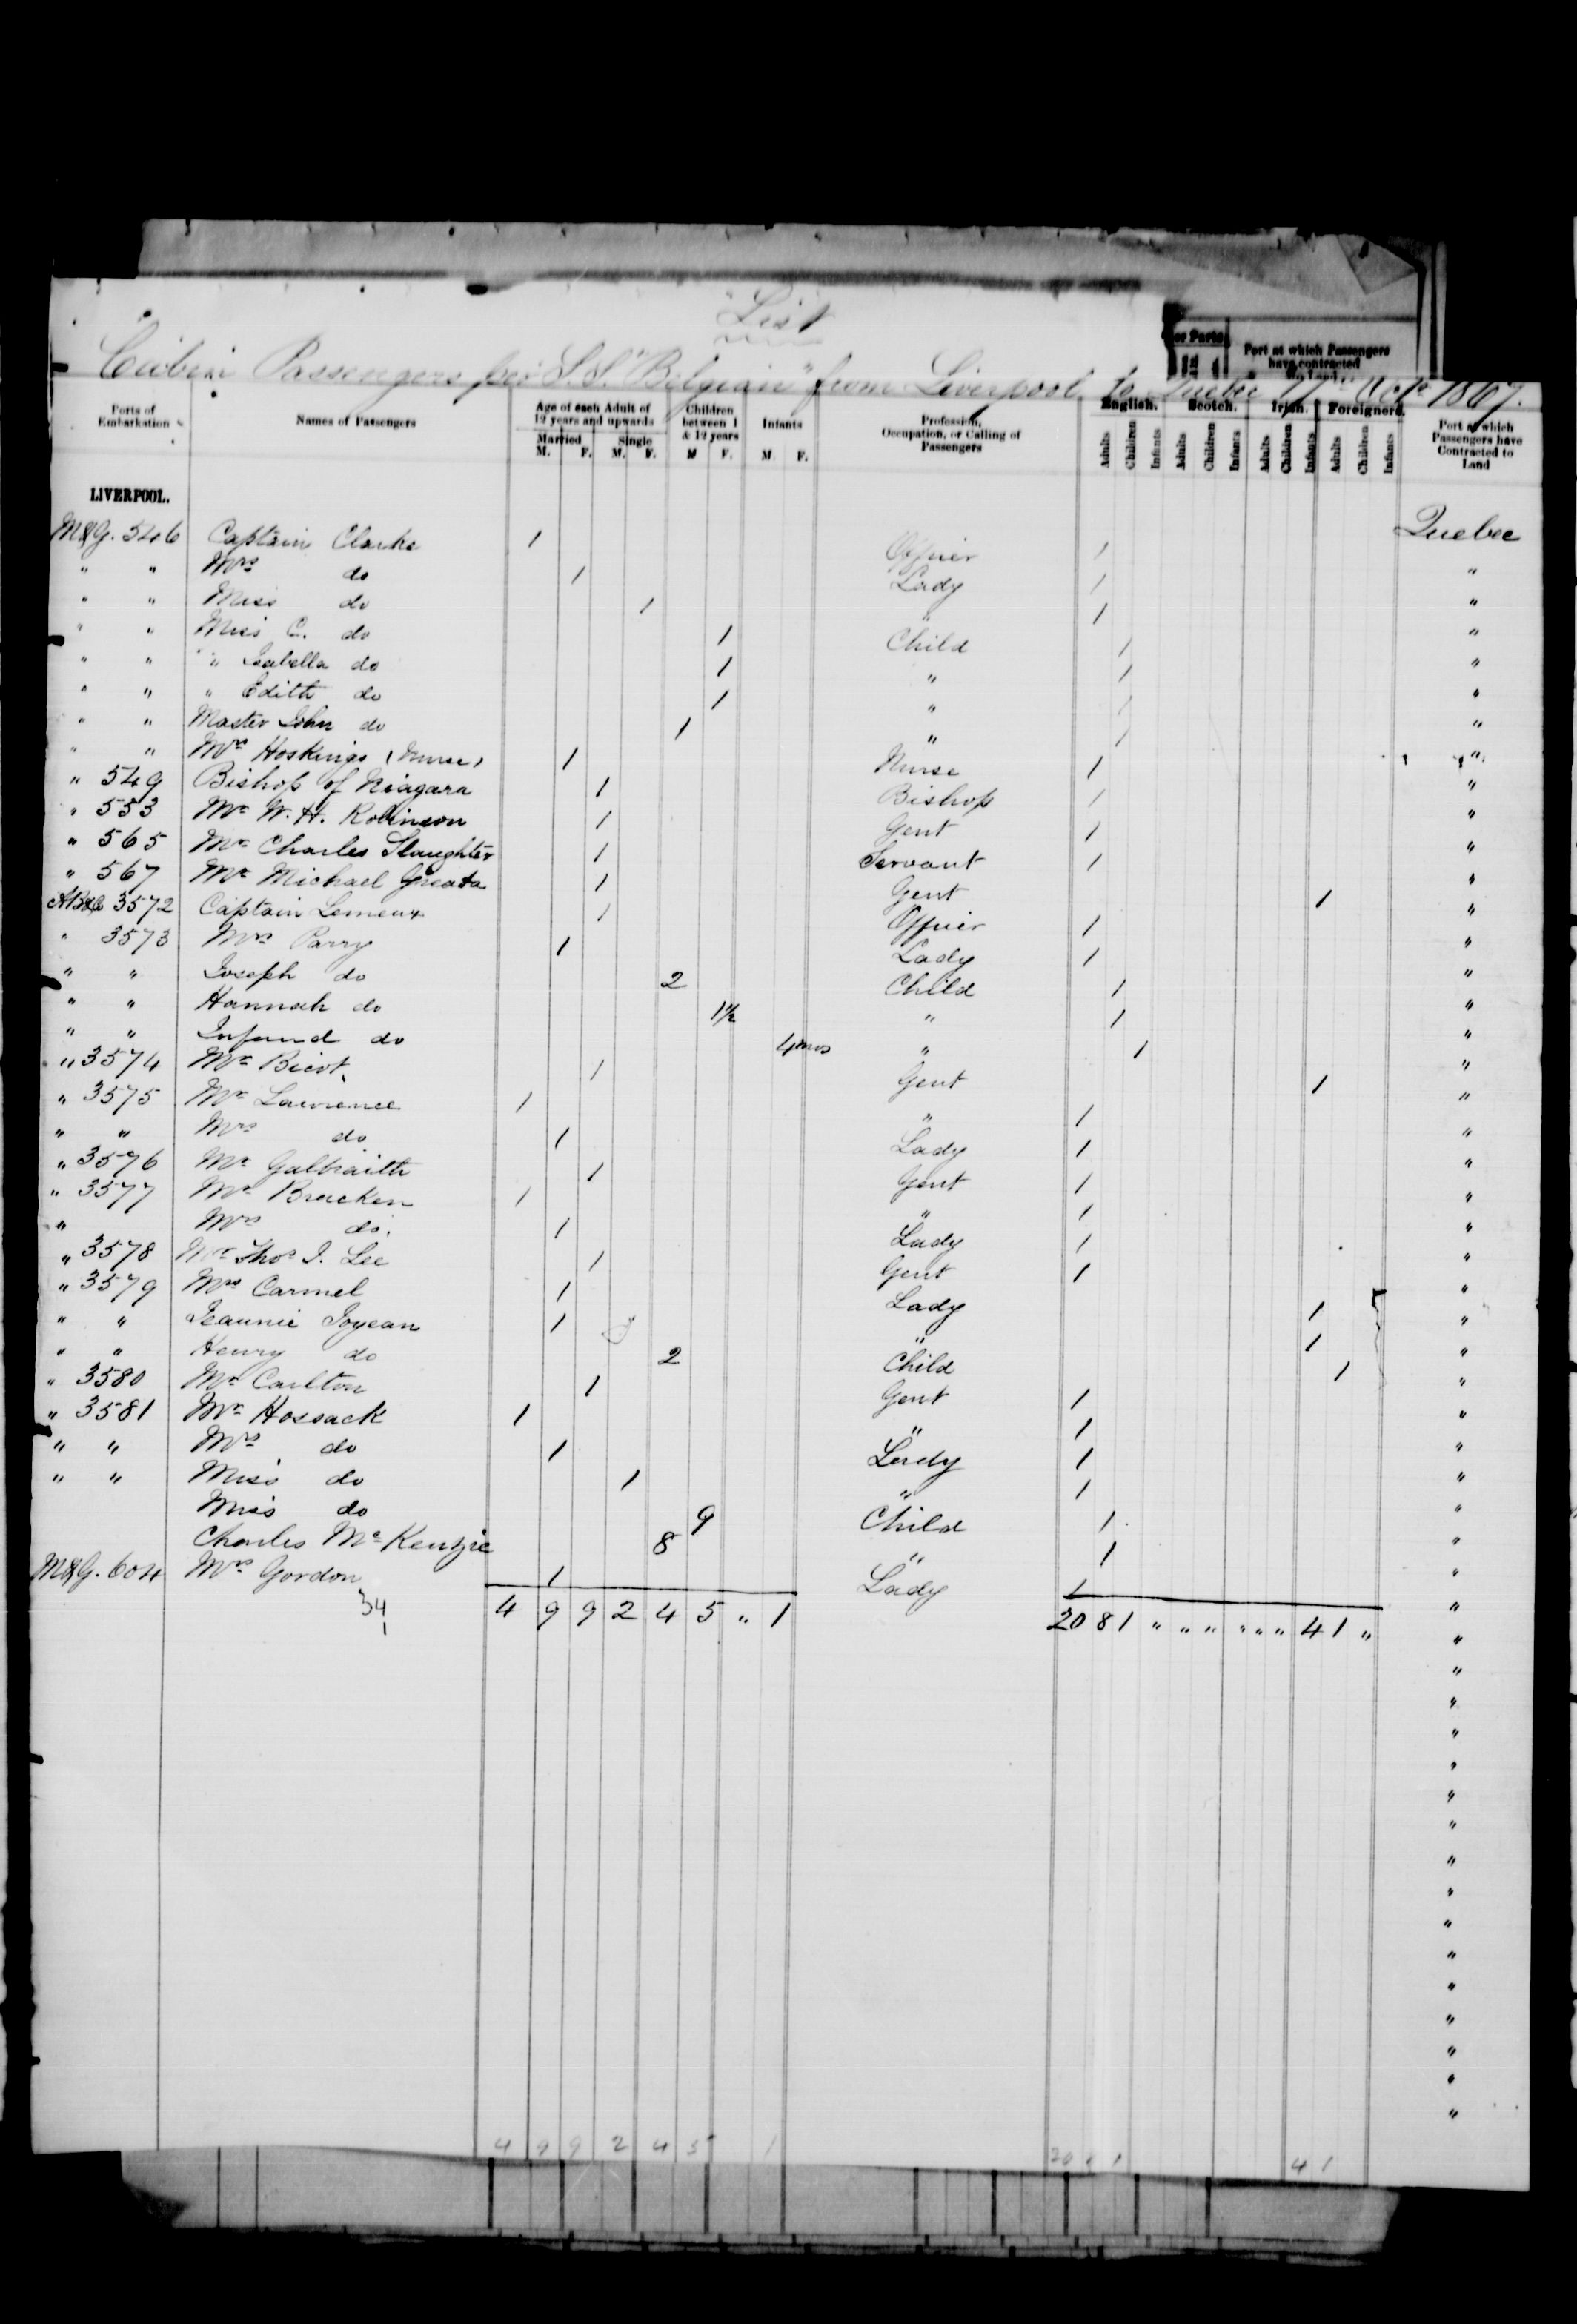 "List"
Cabin Passengers per S.S. "Belgian" from Liverpool to Quebec 17th Octr. 1867.
or Ports
Port at which Passengers have contracted
Ports of Embarkation
Names of Passengers
Age of each Adult of 12 years and upwards
Married M. F. Single M. F.
Children between 1 & 12 years M F.
Infants M. F.
Profession, Occupation, or Calling of Passengers
English. Adults Children Infants
Scotch. Adults Children Infants
Irish. Adults Children Infants
Foreigners. Adults Children Infants
Port at which Passengers have Contracted to Land
LIVERPOOL.
M&G. 546 Captain Clarke 1 Officer 1 Quebec
" " Mrs do 1 Lady 1 "
" " Miss do 1 " 1 "
" " Miss C. do 1 Child 1 "
" " " Isabella do 1 " 1 "
" " " Edith do 1 " 1 "
" " Master John do 1 " 1 "
" " Mrs Hoskings (Nurse) 1 Nurse 1 "
" 549 Bishop of Niagara 1 Bishop 1 "
" 553 Mr W. H. Robinson 1 Gent 1 "
" 565 Mr Charles Slaughter 1 Servant 1 "
" 567 Mr Michael 1 Gent 1 "
3572 Captain Lemeux 1 Officer 1 "
" 3573 Mrs Parry 1 Lady 1 "
" " Joseph do 2 Child 1 "
" " Hannah do 1½ " 1 "
" " do 4 mos " 1 "
" 3574 Mr 1 Gent 1 "
" 3575 Mr Lawrence 1 " 1 "
" " Mrs do 1 Lady 1 "
" 3576 Mr Galbraith 1 Gent 1 "
" 3577 Mr Bracken 1 " 1 "
" Mrs do. 1 Lady 1 "
" 3578 Mr Thos J. Lee 1 Gent 1 "
" 3579 Mrs Carmel 1 Lady 1 "
" " Jeannie Joyean 1 " 1 "
" " Henry do 2 Child 1 "
" 3580 Mr Carlton 1 Gent 1 "
" 3581 Mr Hossack 1 " 1 "
" " Mrs do 1 Lady 1 "
" " Miss do 1 " 1 "
Miss do 9 Child 1 "
Charles McKenzie 8 " 1 "
M&G. 604 Mrs Gordon 1 Lady 1 "
34 4 9 9 2 4 5 " 1 20 8 1 " " " " " " 4 1 " "
1
4 9 9 2 4 5 1 20 8 1 4 1